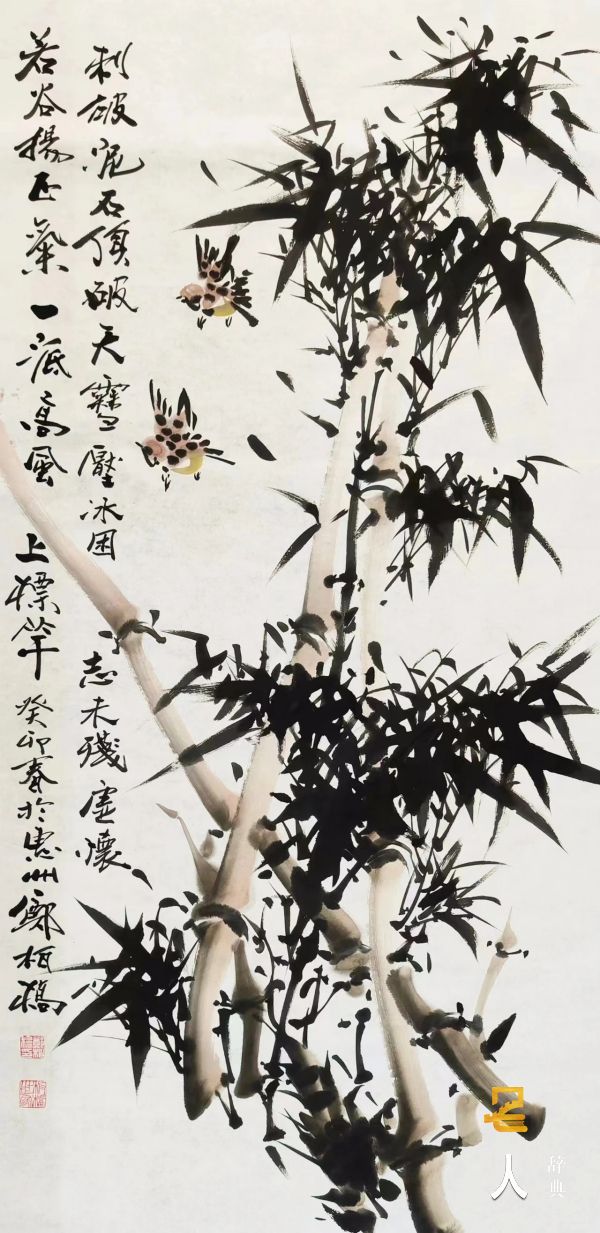 刺破泥石頂破天雪壓冰困志未殘虛懷
若谷揚正氣一派高風上標竿癸卯春於惠州鄭柏橋
名人
辞典